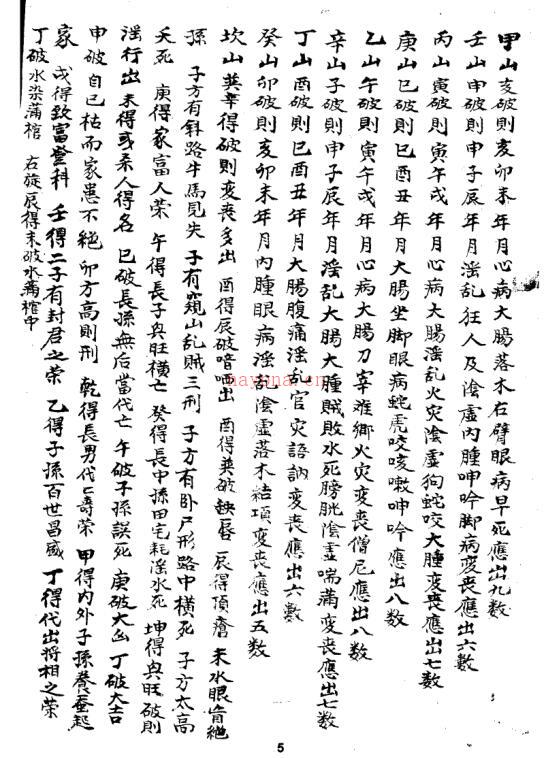 甲山亥破則亥卯未年月心病大腸落木右臂眼病早死應出九數
壬山申破則申子辰年月淫乱狂人及陰虛內腫呻吟脚病变丧應出六數
丙山寅破則寅午戌年月心病大腸淫乱火灾陰虛狗蛇咬大腫变丧應出七数
庚山巳破則巳酉丑年月大腸坐脚眼病蛇虎咬咳嗽呻吟應出八数
乙山午破則寅午戌年月心病大腸刀宰離鄉火灾变丧僧尼應出八数
辛山子破則申子辰年月淫乱大腸大腫賊敗水死膀胱陰虛喘满变丧應出七数
丁山酉破則巳酉丑年月大腸腹痛淫乱官灾語訥变丧應出六數
癸山卯破則亥卯未年月內腫眼病淫乱陰虛落木結項变丧應出五数
坎山巽辛得破則变丧多出 酉得辰破喑哑出 酉得巽破缺唇 辰得頂瘡 未水眼盲絕
孫 子方有斜路牛馬見失 子有窺山乱賊三刑 子方有卧尸形路中橫死 子方太高
夭死 庚得家富人荣 午得長子與旺橫亡 癸得長中孫田宅耗淫水死 坤得與旺破則
淫行出 未得或孝人得名 巳破長孫無后當代亡 午破子孫誤死 庚破大凶 丁破大吉
申破自已枯而家患不絕 卯方高則刑 乾得長男代亡奇荣 甲得內外子孫養蚕起
家 戌得致富登科 壬得二子有封君之荣 乙得子孫百世昌盛 丁得代出將相之荣
丁破水染蒲棺 右旋辰得未破水满棺中
nayona.cn
5